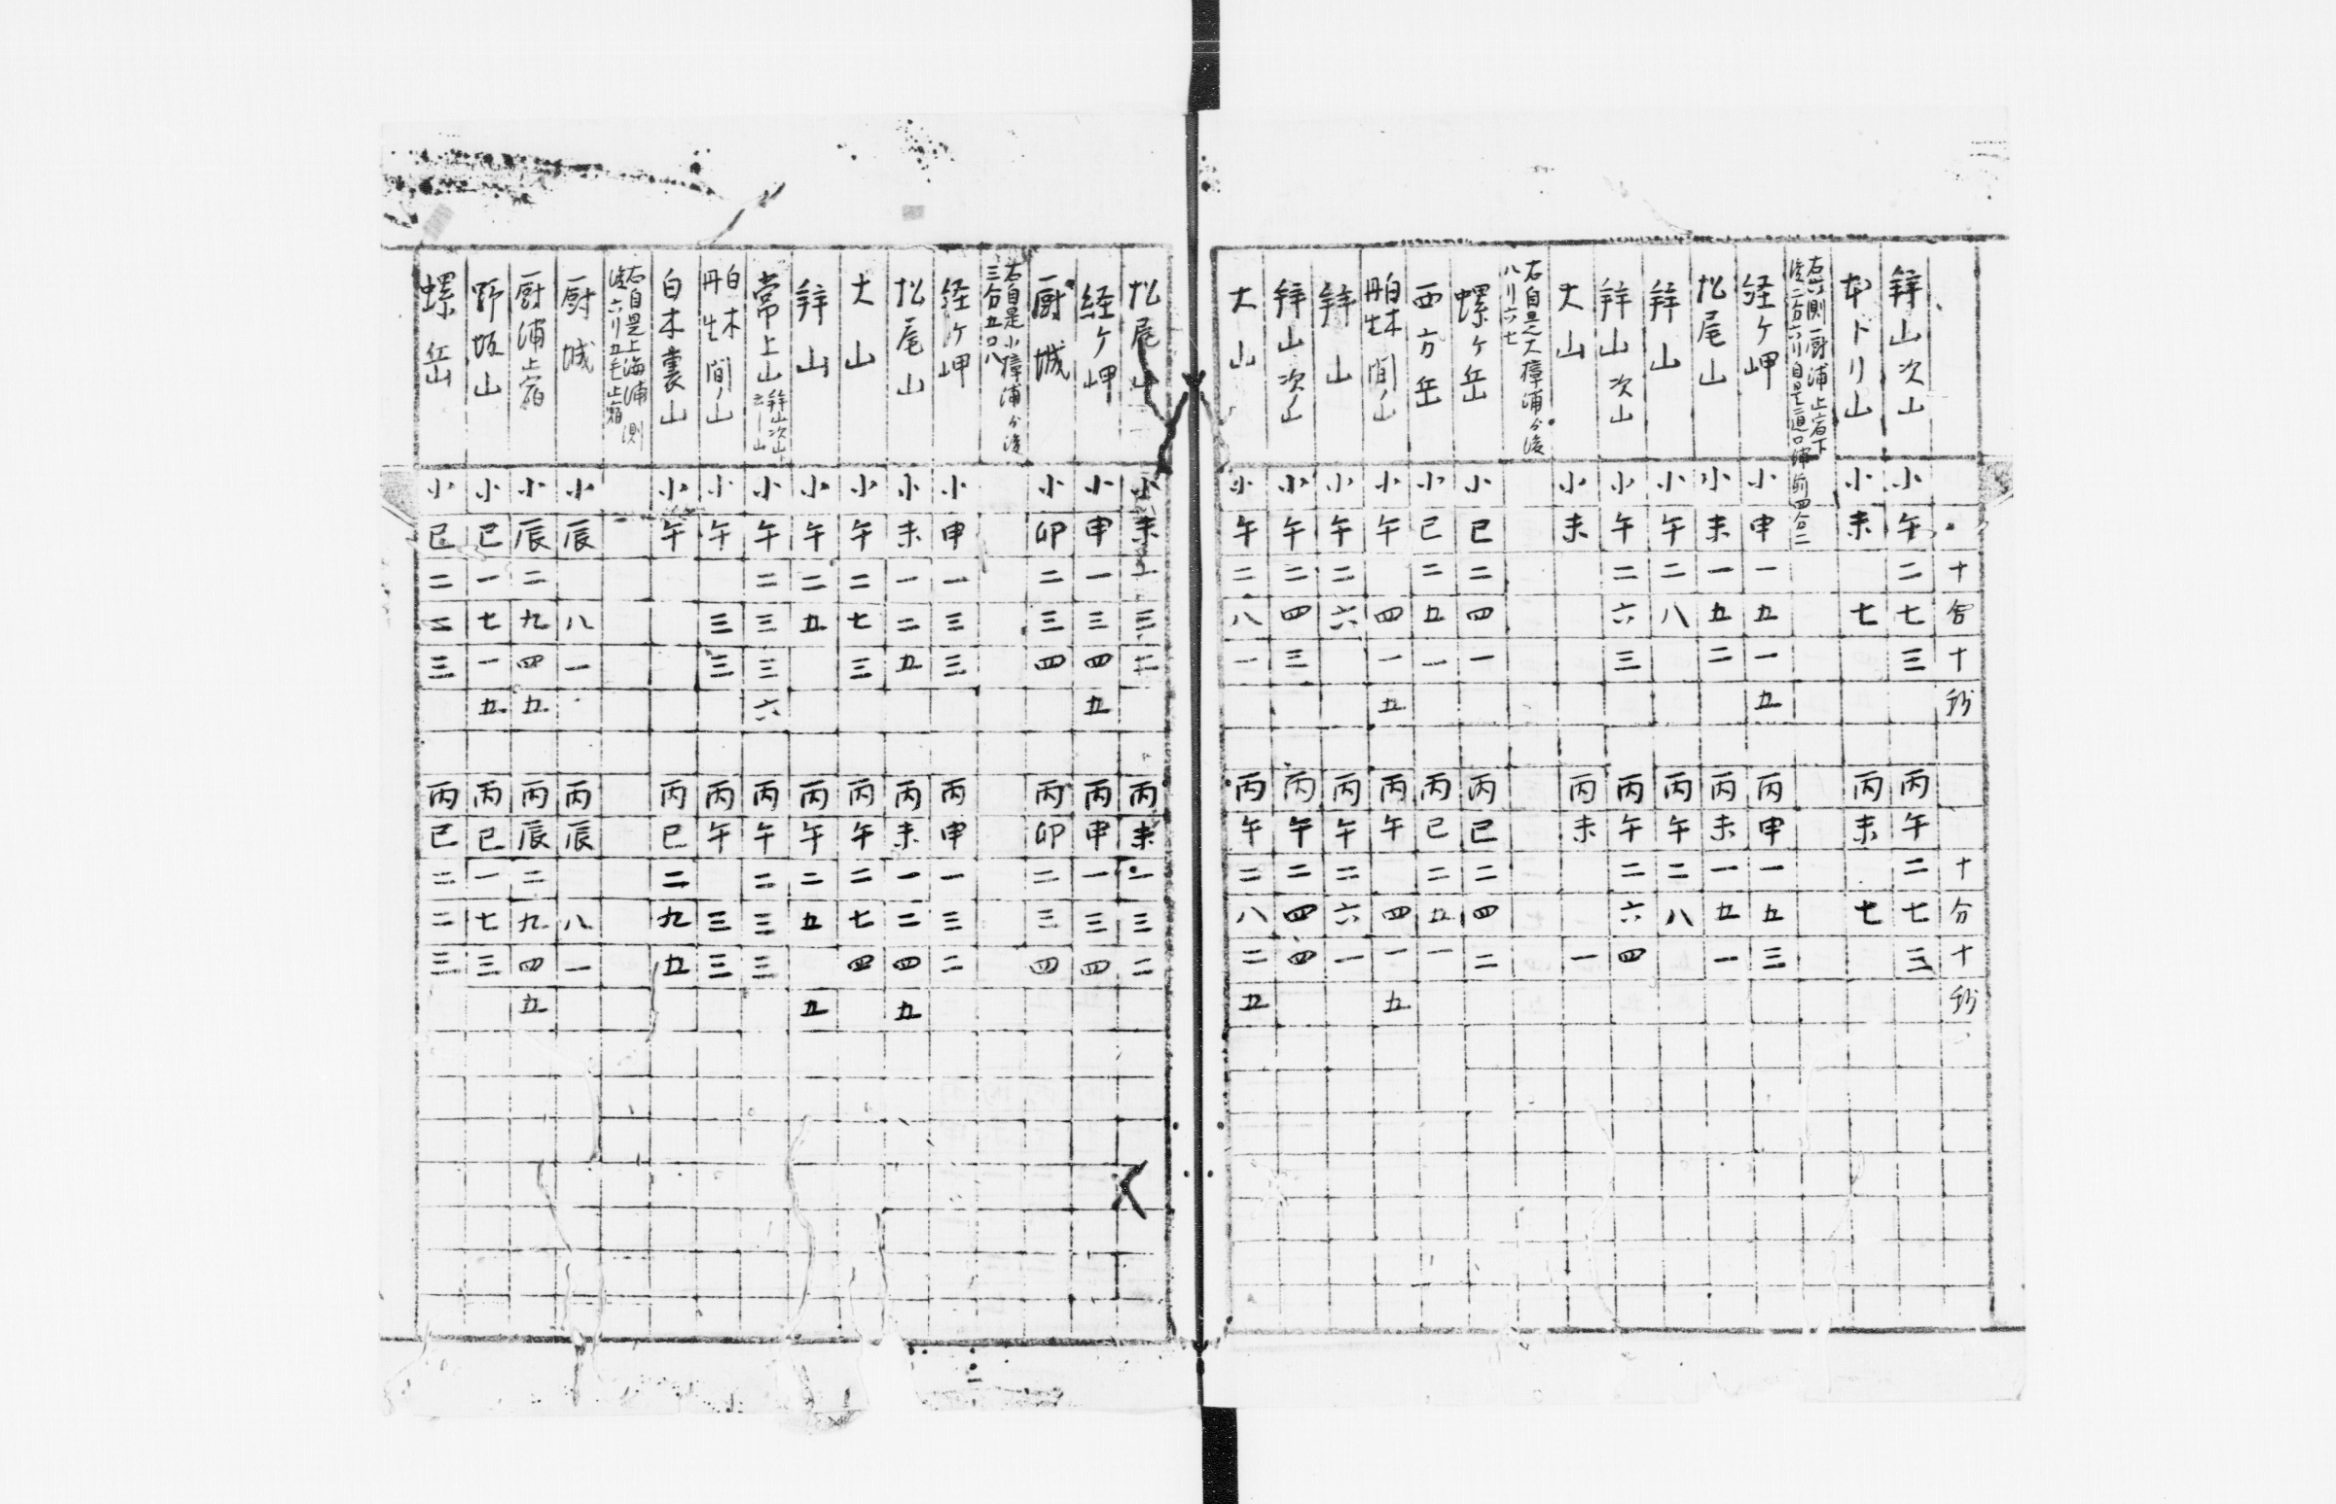 十 分 十 秒 十 分 十 秒
辨山次山 小 午 二 七 三 丙 午 二 七 三
本トリ山 小 未 七 丙 未 七
経ケ岬 小 申 一 五 一 五 丙 申 一 五 三
松尾山 小 未 一 五 二 丙 未 一 五 一
辨山 小 午 二 八 丙 午 二 八
辨山次山 小 午 二 六 三 丙 午 二 六 四
大山 小 未 丙 未 一
右自是大樟浦分後
八リ六七
螺ケ岳 小 巳 二 四 一 丙 巳 二 四 二
西方岳 小 巳 二 五 一 丙 巳 二 五 一
白木丹生間ノ山 小 午 四 一 五 丙 午 四 一 五
辨山 小 午 二 六 丙 午 二 六 一
辨山次山 小 午 二 四 三 丙 午 二 四 四
大山 小 午 二 八 一 丙 午 二 八 二 五
松尾山 小 未 一 三 二 丙 未 一 三 二
経ケ岬 小 申 一 三 四 五 丙 申 一 三 四
厨城 小 卯 二 三 四 丙 卯 二 三 四
右自是小樟浦分後
三合五〇八
経ケ岬 小 申 一 三 三 丙 申 一 三 二
松尾山 小 未 一 二 五 丙 未 一 二 四 五
大山 小 午 二 七 三 丙 午 二 七 四
辨山 小 午 二 五 丙 午 二 五 五
常上山 辨山次山 小 午 二 三 三 六 丙 午 二 三 三
白木丹生間ノ山 小 午 三 三 丙 午 三 三
白木裏山 小 午 丙 巳 二 九 五
右自是上海浦測
後六リ五毛止宿
厨城 小 辰 八 一 丙 辰 八 一
厨浦止宿 小 辰 二 九 四 五 丙 辰 二 九 四 五
野坂山 小 巳 一 七 一 五 丙 巳 一 七 三
螺岳 小 巳 二 二 三 丙 巳 二 二 三